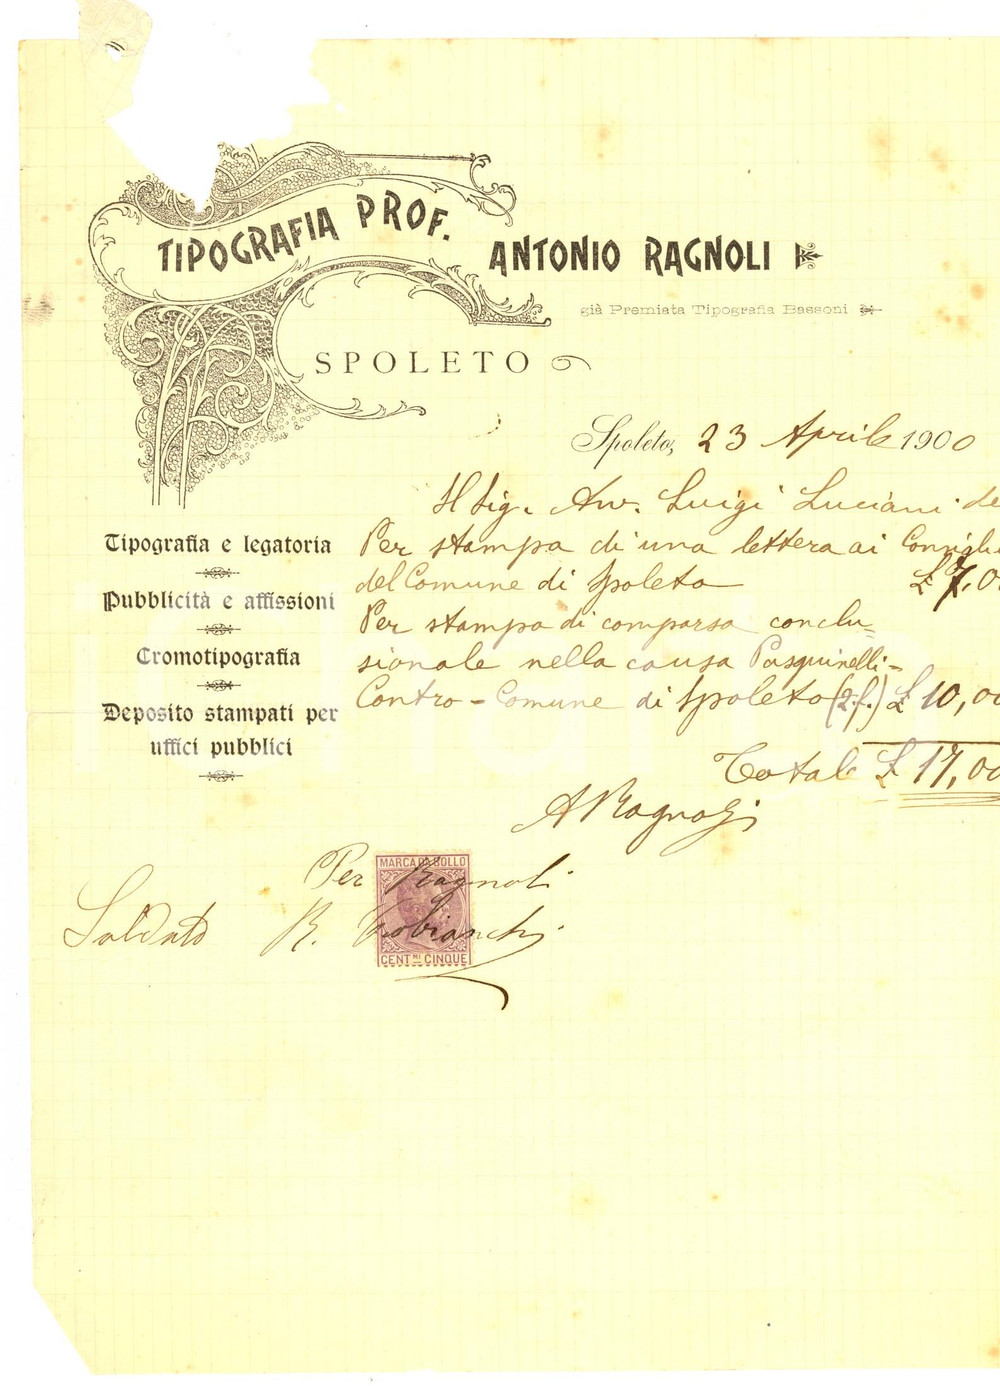 TIPOGRAFIA PROF. ANTONIO RAGNOLI
già Premiata Tipografia Bassoni
SPOLETO
Spoleto, 23 Aprile 1900
Il Sig. Avv. Luigi Luciani de
Per stampa di una lettera ai Consigli
del Comune di Spoleto £ 7,00
Per stampa di comparsa conclu=
sionale nella causa Pasquinelli=
Contro - Comune di Spoleto (2 f.) £ 10,00
Totale £ 17,00
ARagnoli
Tipografia e legatoria
Pubblicità e affissioni
Cromotipografia
Deposito stampati per
uffici pubblici
MARCA DA BOLLO
Per Ragnoli
Saldato R. Tobianchi
CENT.MI CINQUE